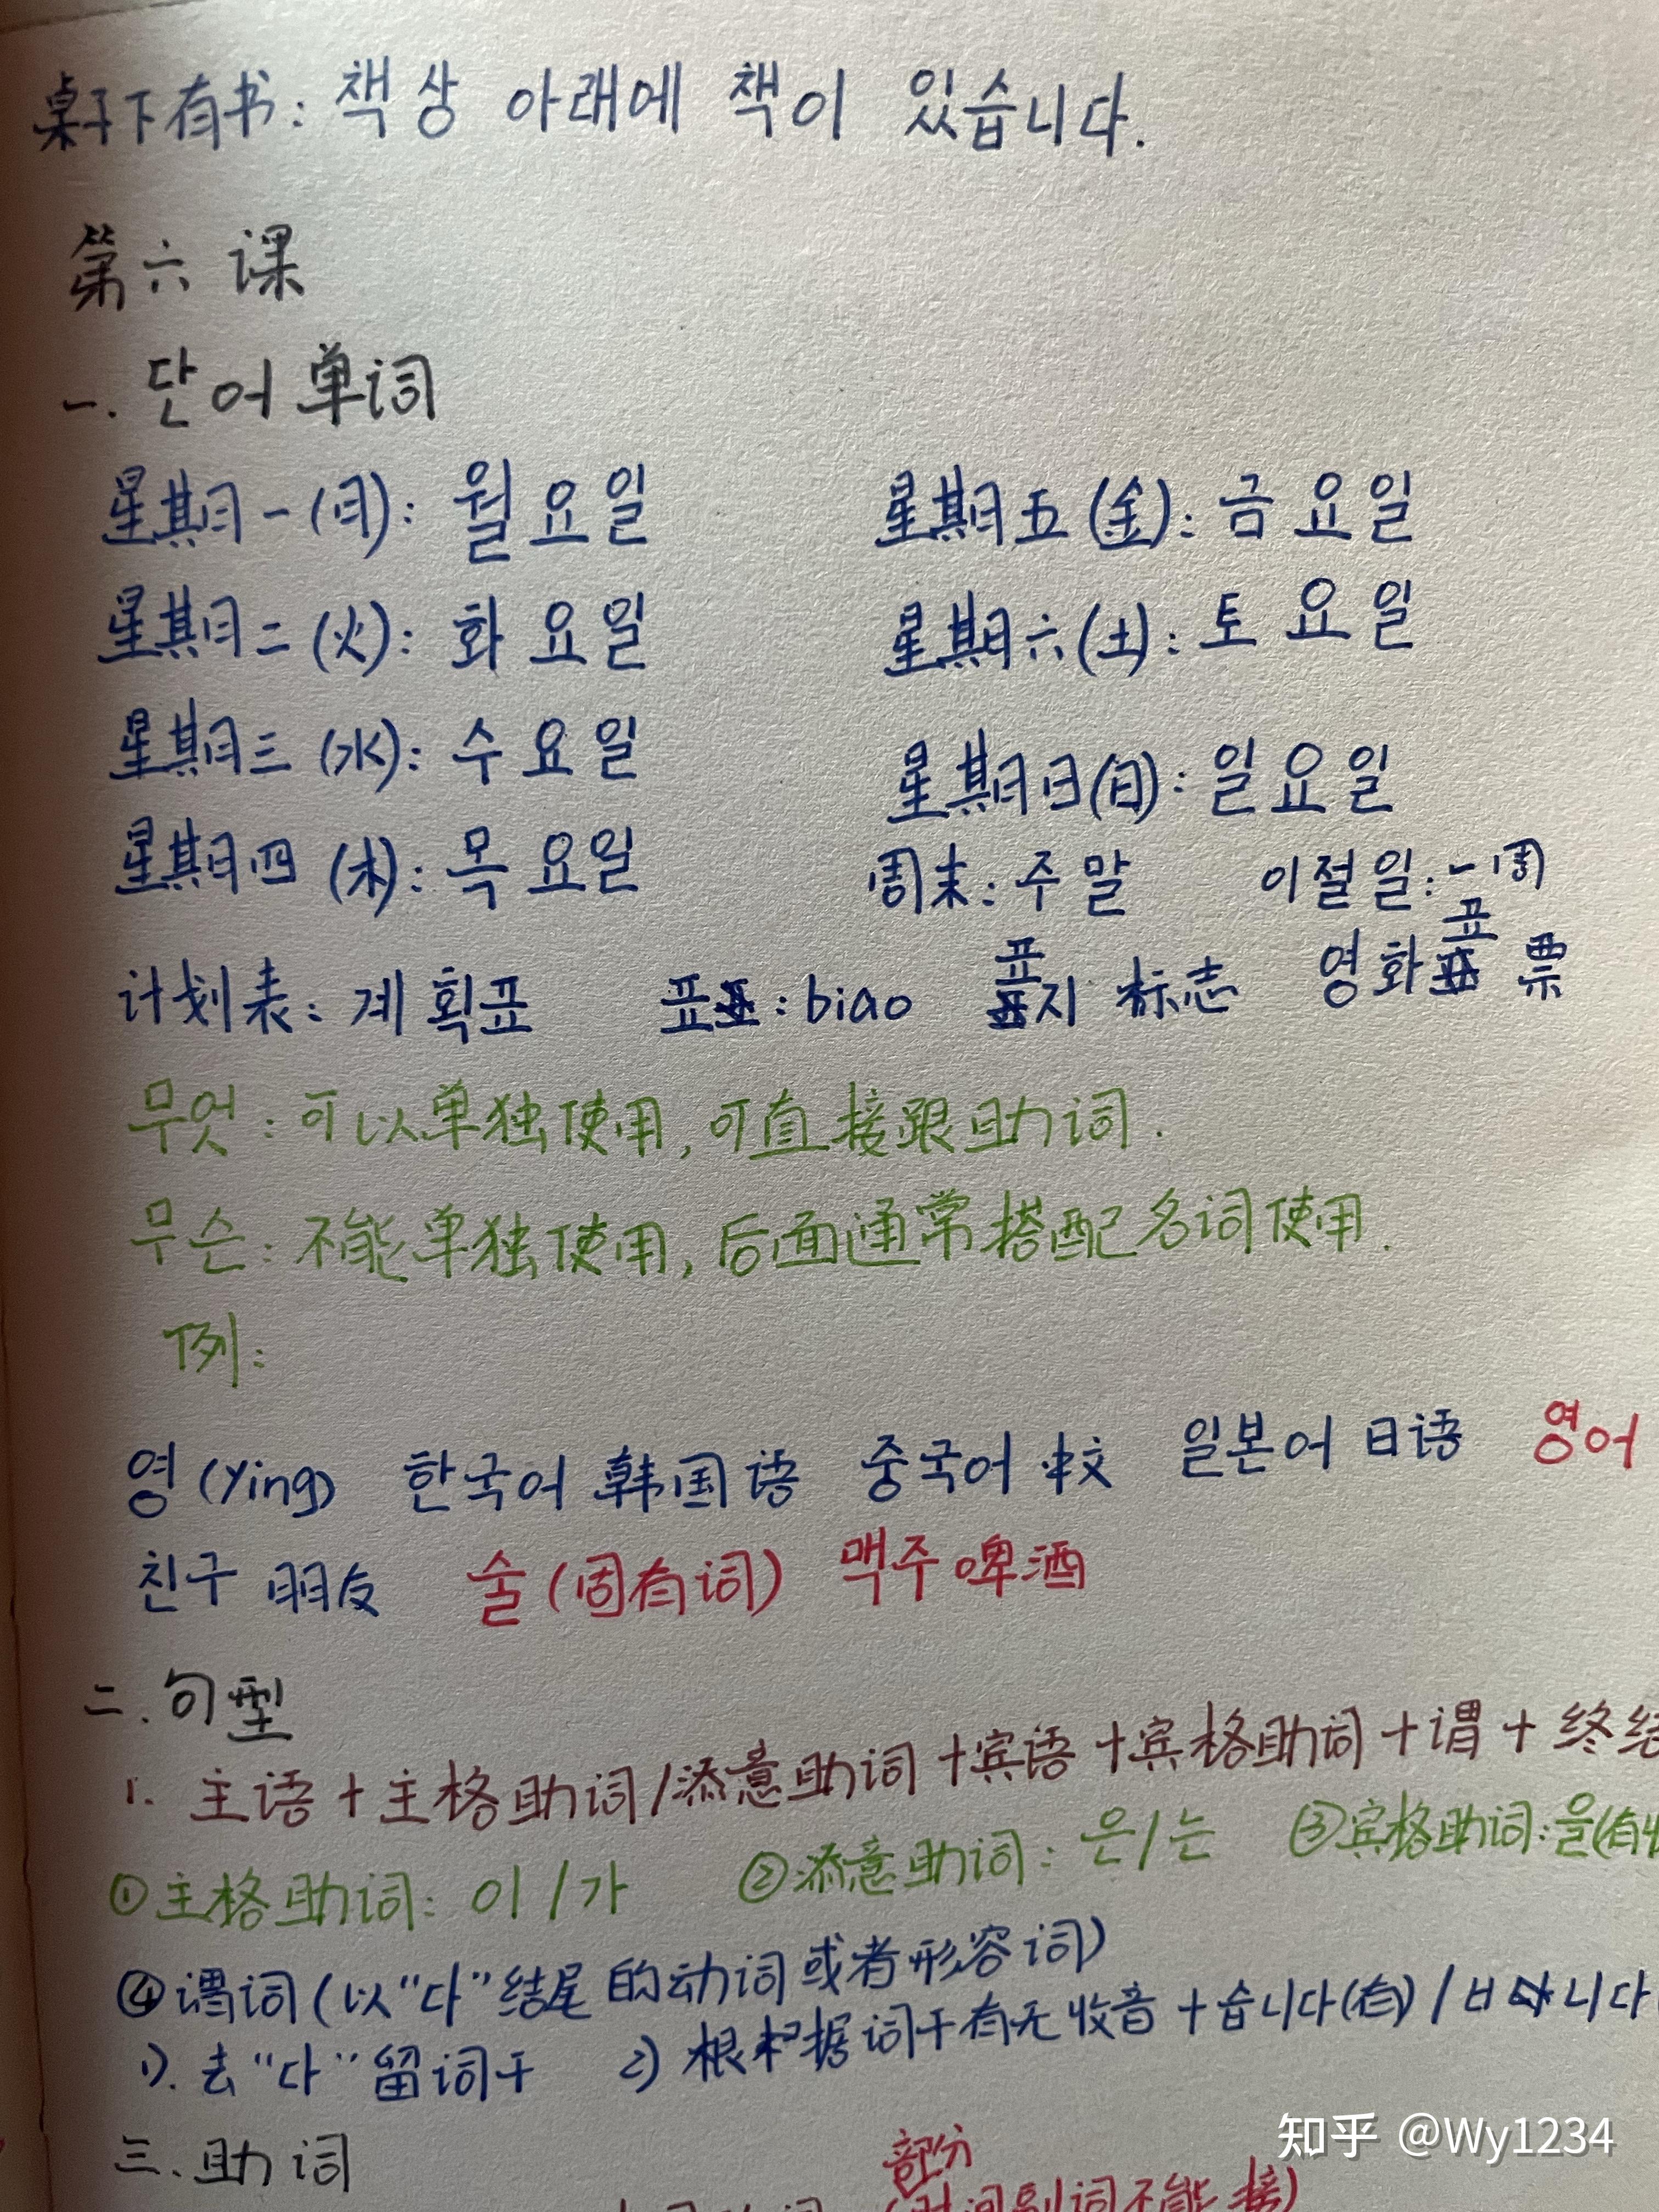 桌子下有书: 책상 아래에 책이 있습니다.
第六课
一. 단어 单词
星期一(月): 월요일 星期五(金): 금요일
星期二(火): 화요일 星期六(土): 토요일
星期三(水): 수요일 星期日(日): 일요일
星期四(木): 목요일 周末: 주말 이절일: 一周
计划表: 계획표 표: biao 표지 标志 영화표 票
무엇: 可以单独使用, 可直接跟助词.
무슨: 不能单独使用, 后面通常搭配名词使用.
例:
영(Ying) 한국어 韩国语 중국어 中文 일본어 日语 영어
친구 朋友 술(固有词) 맥주 啤酒
二. 句型
1. 主语+主格助词/添意助词+宾语+宾格助词+谓+终结
①主格助词: 이/가 ②添意助词: 은/는 ③宾格助词: 을(有收
④谓词(以“다”结尾的动词或者形容词)
1). 去“다”留词干 2) 根据词干有无收音+습니다(有)/ㅂ니다
三. 助词
部分
词不能接)
知乎 @Wy1234